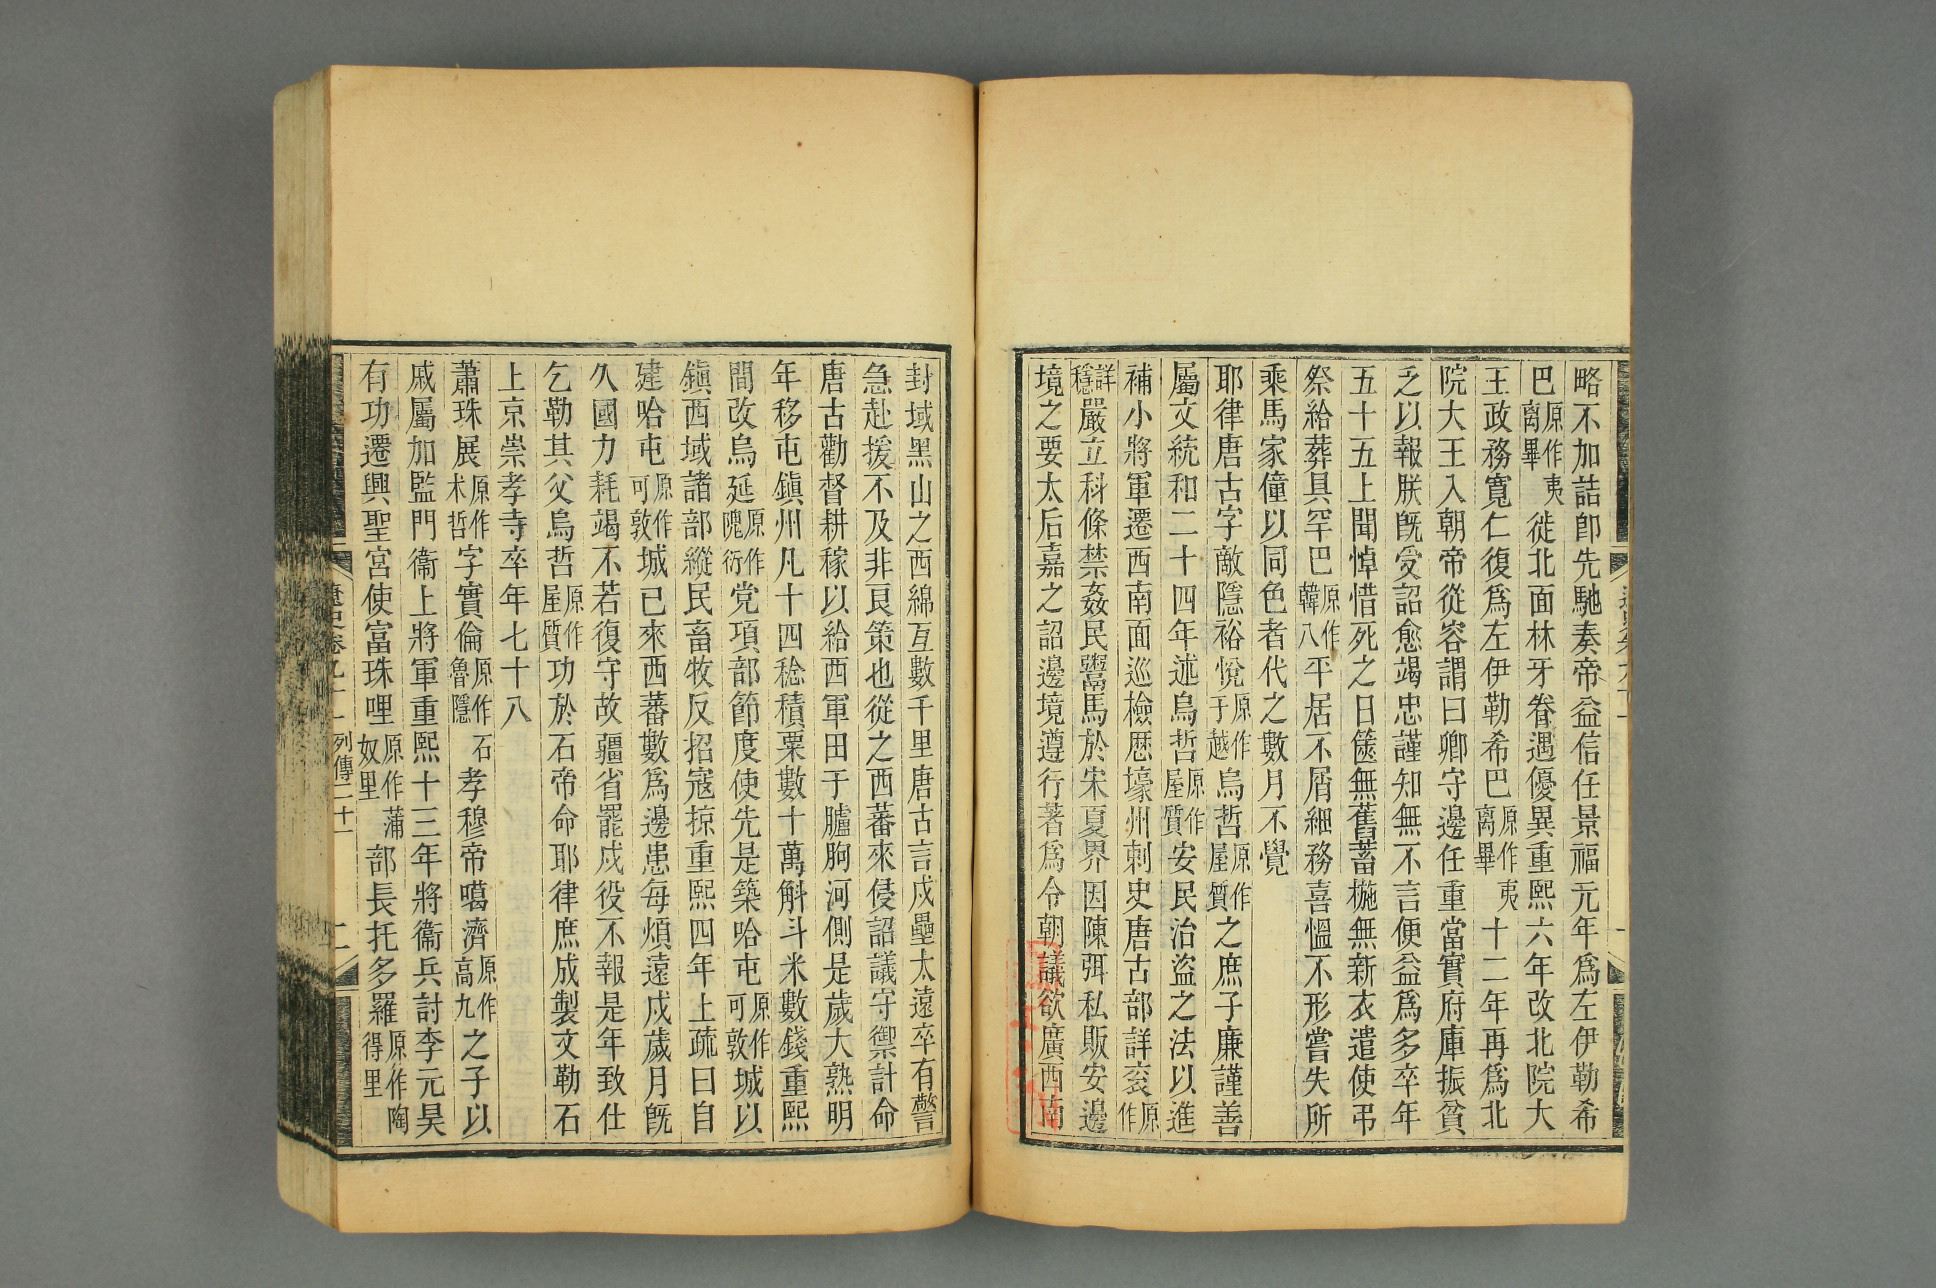 略不加詰卽先馳奏帝益信任景福元年爲左伊勒希
巴原作夷離畢徙北面林牙眷遇優異重熙六年改北院大
王政務寬仁復爲左伊勒希巴原作夷離畢十二年再爲北
院大王入朝帝從容謂曰卿守邊任重當實府庫振貧
乏以報朕旣受詔愈竭忠謹知無不言便益爲多卒年
五十五上聞悼惜死之日篋無舊蓄椸無新衣遣使弔
祭給葬具罕巴原作韓八平居不屑細務喜慍不形嘗失所
乘馬家僮以同色者代之數月不覺
耶律唐古字敵隱裕悅原作于越烏哲原作屋質之庶子廉謹善
屬文統和二十四年述烏哲原作屋質安民治盜之法以進
補小將軍遷西南面巡檢歷壕州刺史唐古部詳袞原作
詳穩嚴立科條禁姦民鬻馬於宋夏界因陳弭私販安邊
境之要太后嘉之詔邊境遵行著爲令朝議欲廣西南
封域黑山之西綿亙數千里唐古言戍壘太遠卒有警
急赴援不及非良策也從之西蕃來侵詔議守禦計命
唐古勸督耕稼以給西軍田于臚朐河側是歲大熟明
年移屯鎭州凡十四稔積粟數十萬斛斗米數錢重熙
間改烏延原作隗衍党項部節度使先是築哈屯原作可敦城以
鎭西域諸部縱民畜牧反招寇掠重熙四年上疏曰自
建哈屯原作可敦城已來西蕃數爲邊患每煩遠戍歲月旣
久國力耗竭不若復守故疆省罷戍役不報是年致仕
乞勒其父烏哲原作屋質功於石帝命耶律庶成製文勒石
上京崇孝寺卒年七十八
蕭珠展原作朮哲字實倫原作石魯隱孝穆帝噶濟原作高九之子以
戚屬加監門衞上將軍重熙十三年將衞兵討李元昊
有功遷興聖宮使富珠哩原作蒲奴里部長托多羅原作陶得里
遼史卷九十一
列傳二十一
二